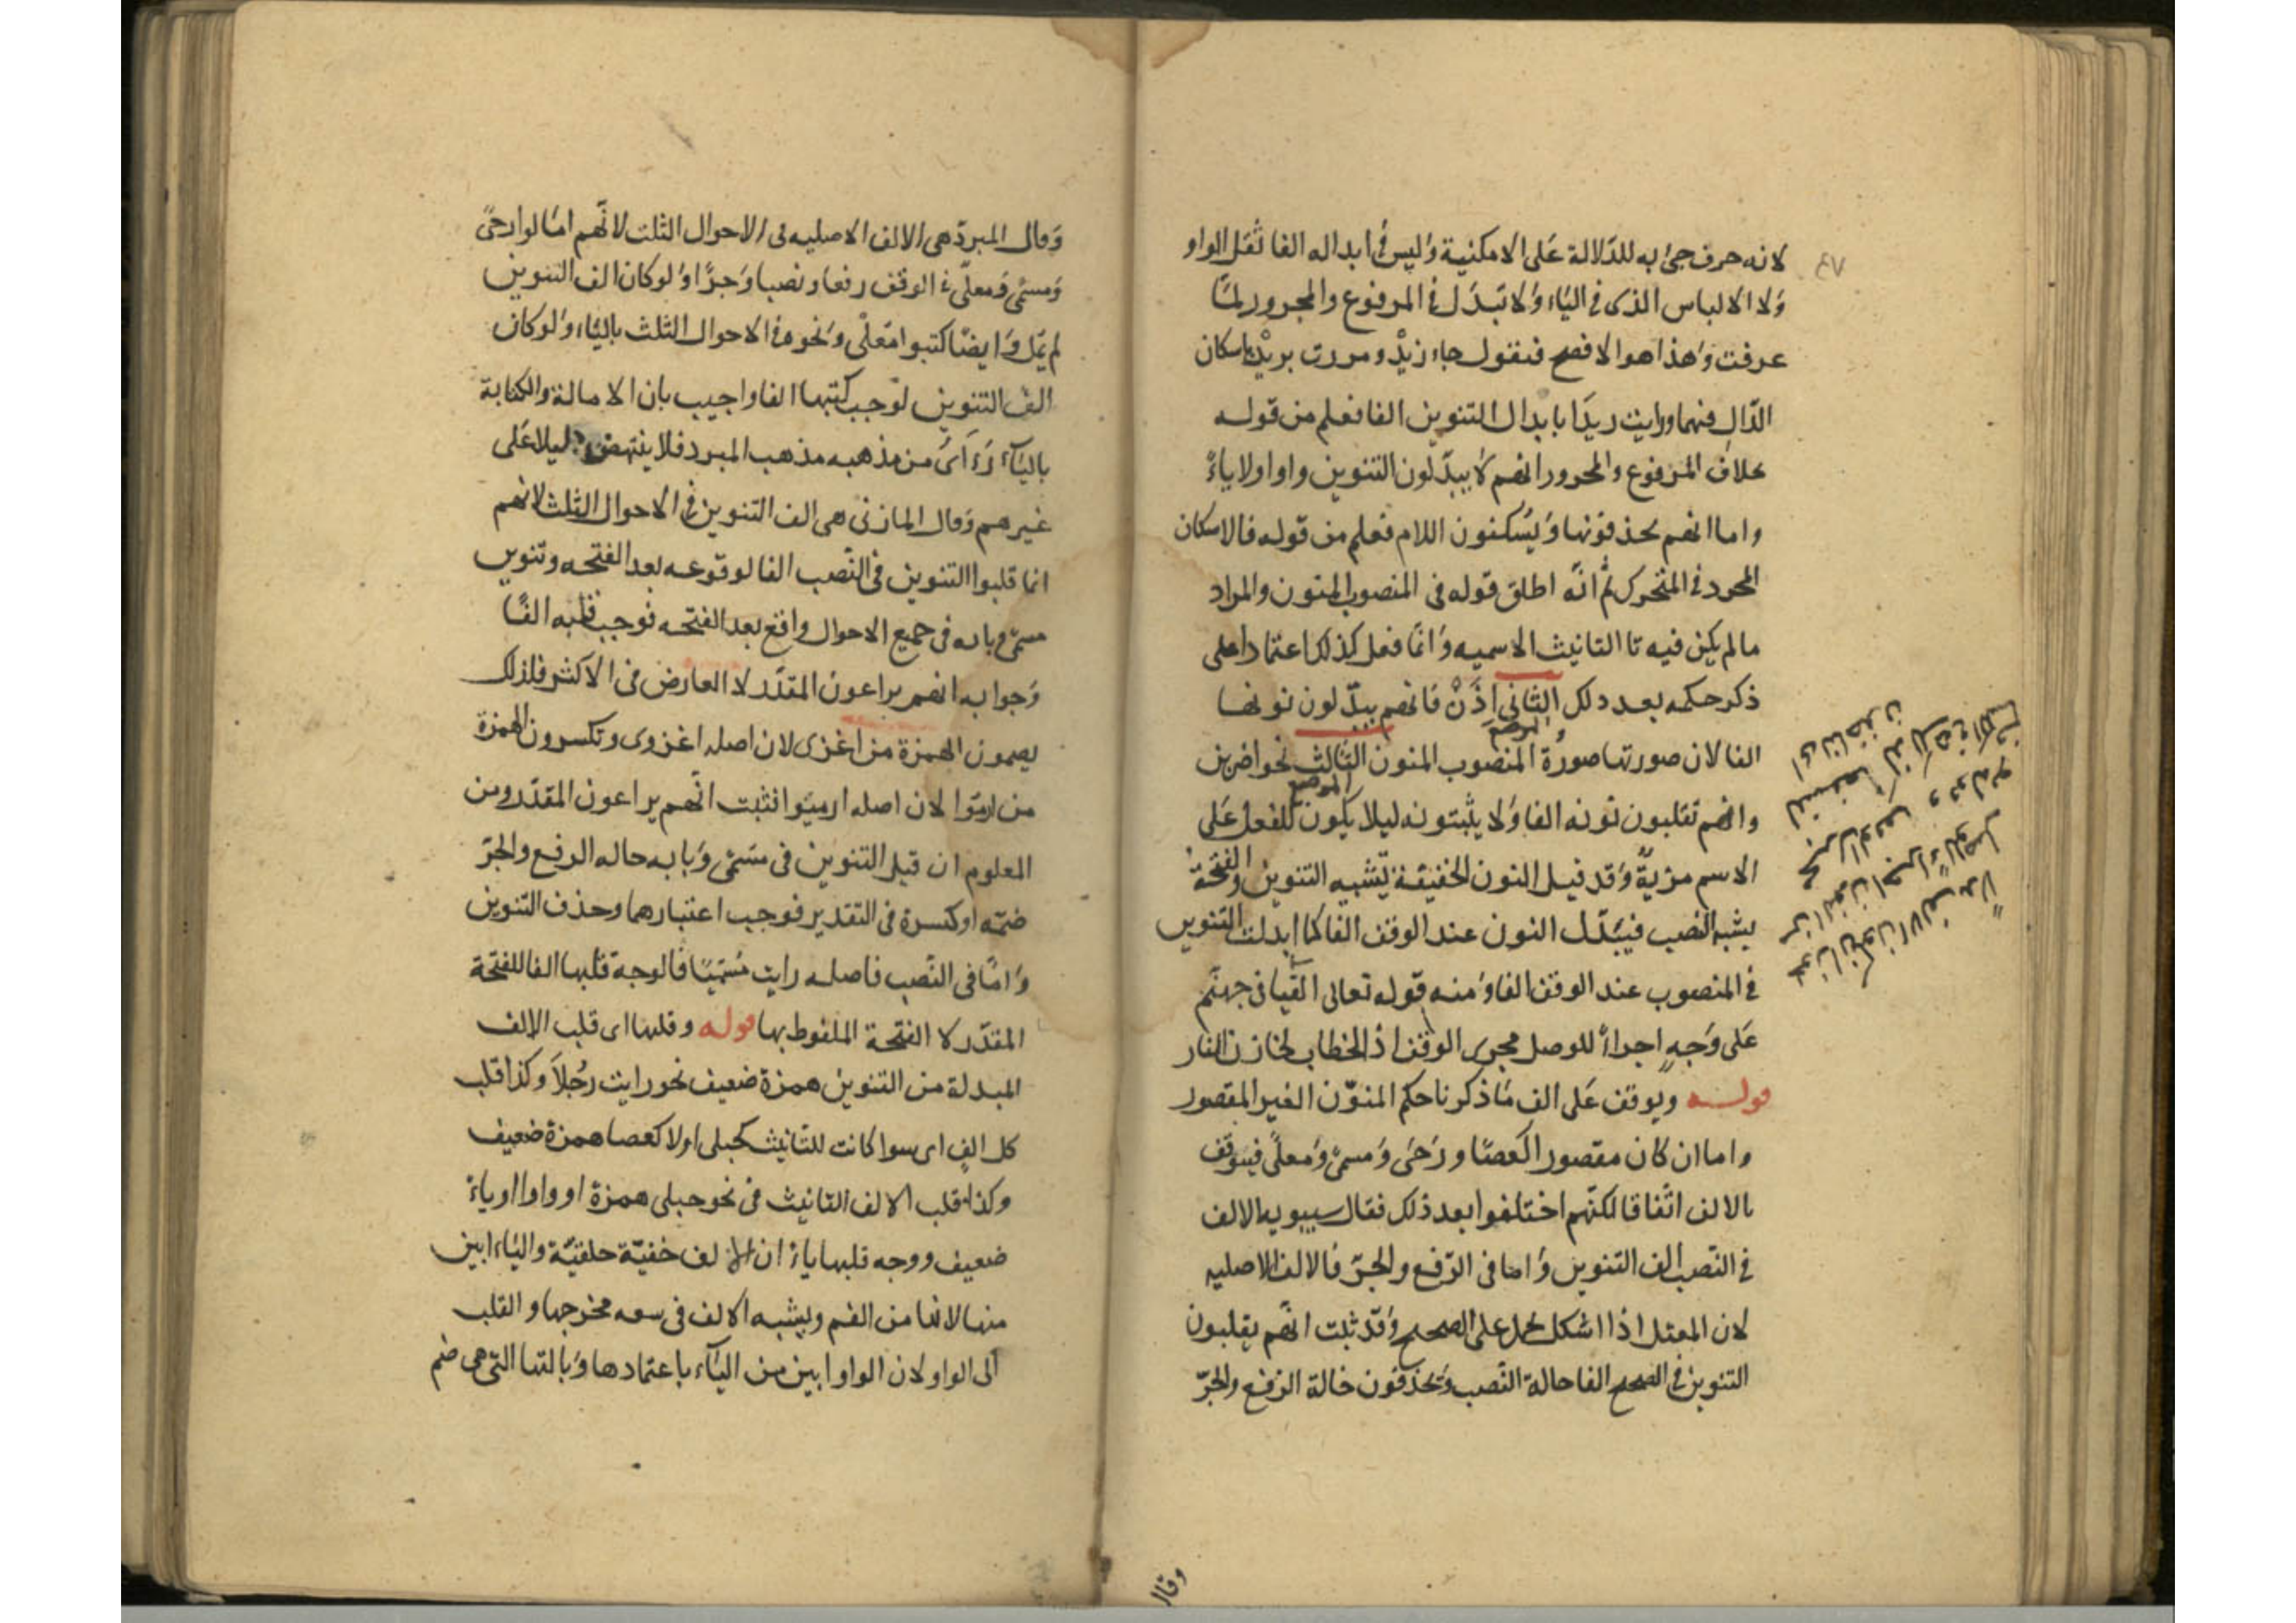 ٤٧
لانه حرف جئ به للدلالة على الامكنية وليس فى ابداله الفا ثقل الواو
ولا الالباس الذى فى الياء ولا تبدل فى المرفوع والمجرور لما
عرفت وهذا هو الافصح فتقول جاء زيدْ ومررت بزيدْ باسكان
الدال فيهما ورايت زيدا بابدال التنوين الفا فعلم من قوله
بخلاف المرفوع والمجرور انهم لا يبدلون التنوين واوا ولا ياءً
واما انهم يحذفونها ويسكنون اللام فعلم من قوله فالاسكان
المجرد فى المتحرك ثم انه اطلق قوله فى المنصوب المنون والمراد
ما لم يكن فيه تا التانيث الاسميه وانما فعل كذلك اعتمادا على
ذكر حكمه بعد ذلك الثانى اذن فانهم يبدلون نونها
الموضع
الفا لان صورتها صورة المنصوب المنون الثالث نحو اضربن
الموضع
وانهم تقلبون نونه الفا ولا يثبتونه ليلا يكون للفعل على
الاسم مزية وقد قيل النون الخفيفة يشبه التنوين والفتحة
يشبه النصب فيبدل النون عند الوقف الفا كما ابدلت التنوين
فى المنصوب عند الوقف الفا ومنه قوله تعالى القيا فى جهنم
على وجه اجراءً للوصل مجرى الوقف اذ الخطاب لخازن النار
قوله ويوقف على الف ما ذكرنا حكم المنون الغير المقصور
واما ان كان مقصورا كعصا ورحى ومسمى ومعلى فيوقف
بالالف اتفاقا لكنهم اختلفوا بعد ذلك فقال سيبويه الالف
فى النصب الف التنوين واما فى الرفع والجر فالالف الاصليه
لان المعتل اذا اشكل حمل على الصحيح وقد ثبت انهم يقلبون
التنوين فى الصحيح الفا حالة النصب ويحذفون حالة الرفع والجر
وقال
وقال المبرد هى الالف الاصليه فى الاحوال الثلث لانهم امالوا رحى
ومسمى ومعلى فى الوقف رفعا ونصبا وجرا ولو كان الف التنوين
لم يمل وايضا كتبوا معلى ونحوه فى الاحوال الثلث بالياء ولو كان
الف التنوين لوجب كتبها الفا واجيب بان الامالة والكتابة
بالياء راى من مذهبه مذهب المبرد فلا ينتهض دليلا على
غيرهم وقال المازنى هى الف التنوين فى الاحوال الثلث لانهم
انما قلبوا التنوين فى النصب الفا لوقوعه بعد الفتحه وتنوين
مسمى وبابه فى جميع الاحوال واقع بعد الفتحه فوجب قلبه الفا
وجوابه انهم يراعون المقدر لا العارض فى الاكثر فلذلك
يضمون الهمزة من اغزى لان اصله اغزوى وتكسرون الهمزة
من ارموا لان اصله ارميوا فثبت انهم يراعون المقدر ومن
المعلوم ان قبل التنوين فى مسمى وبابه حاله الرفع والجر
ضمه او كسرة فى التقدير فوجب اعتبارهما وحذف التنوين
واما فى النصب فاصله رايت مسميا فالوجه قلبها الفا للفتحة
المقدر لا الفتحة الملفوظ بها قوله وقلبها اى قلب الالف
المبدلة من التنوين همزة ضعيف نحو رايت رجلا وكذا قلب
كل الف اى سوا كانت للتانيث كحبلى اولا كعصا همزة ضعيف
وكذا قلب الالف التانيث فى نحو حبلى همزة او واوا او ياءً
ضعيف ووجه قلبها ياءً ان الالف خفية حلقية والياء ابين
منها لانها من الفم ويشبه الالف فى سعه مخرجها والقلب
الى الواو لان الواو ابين من الياء باعتمادها وبالتها التى هى ضم